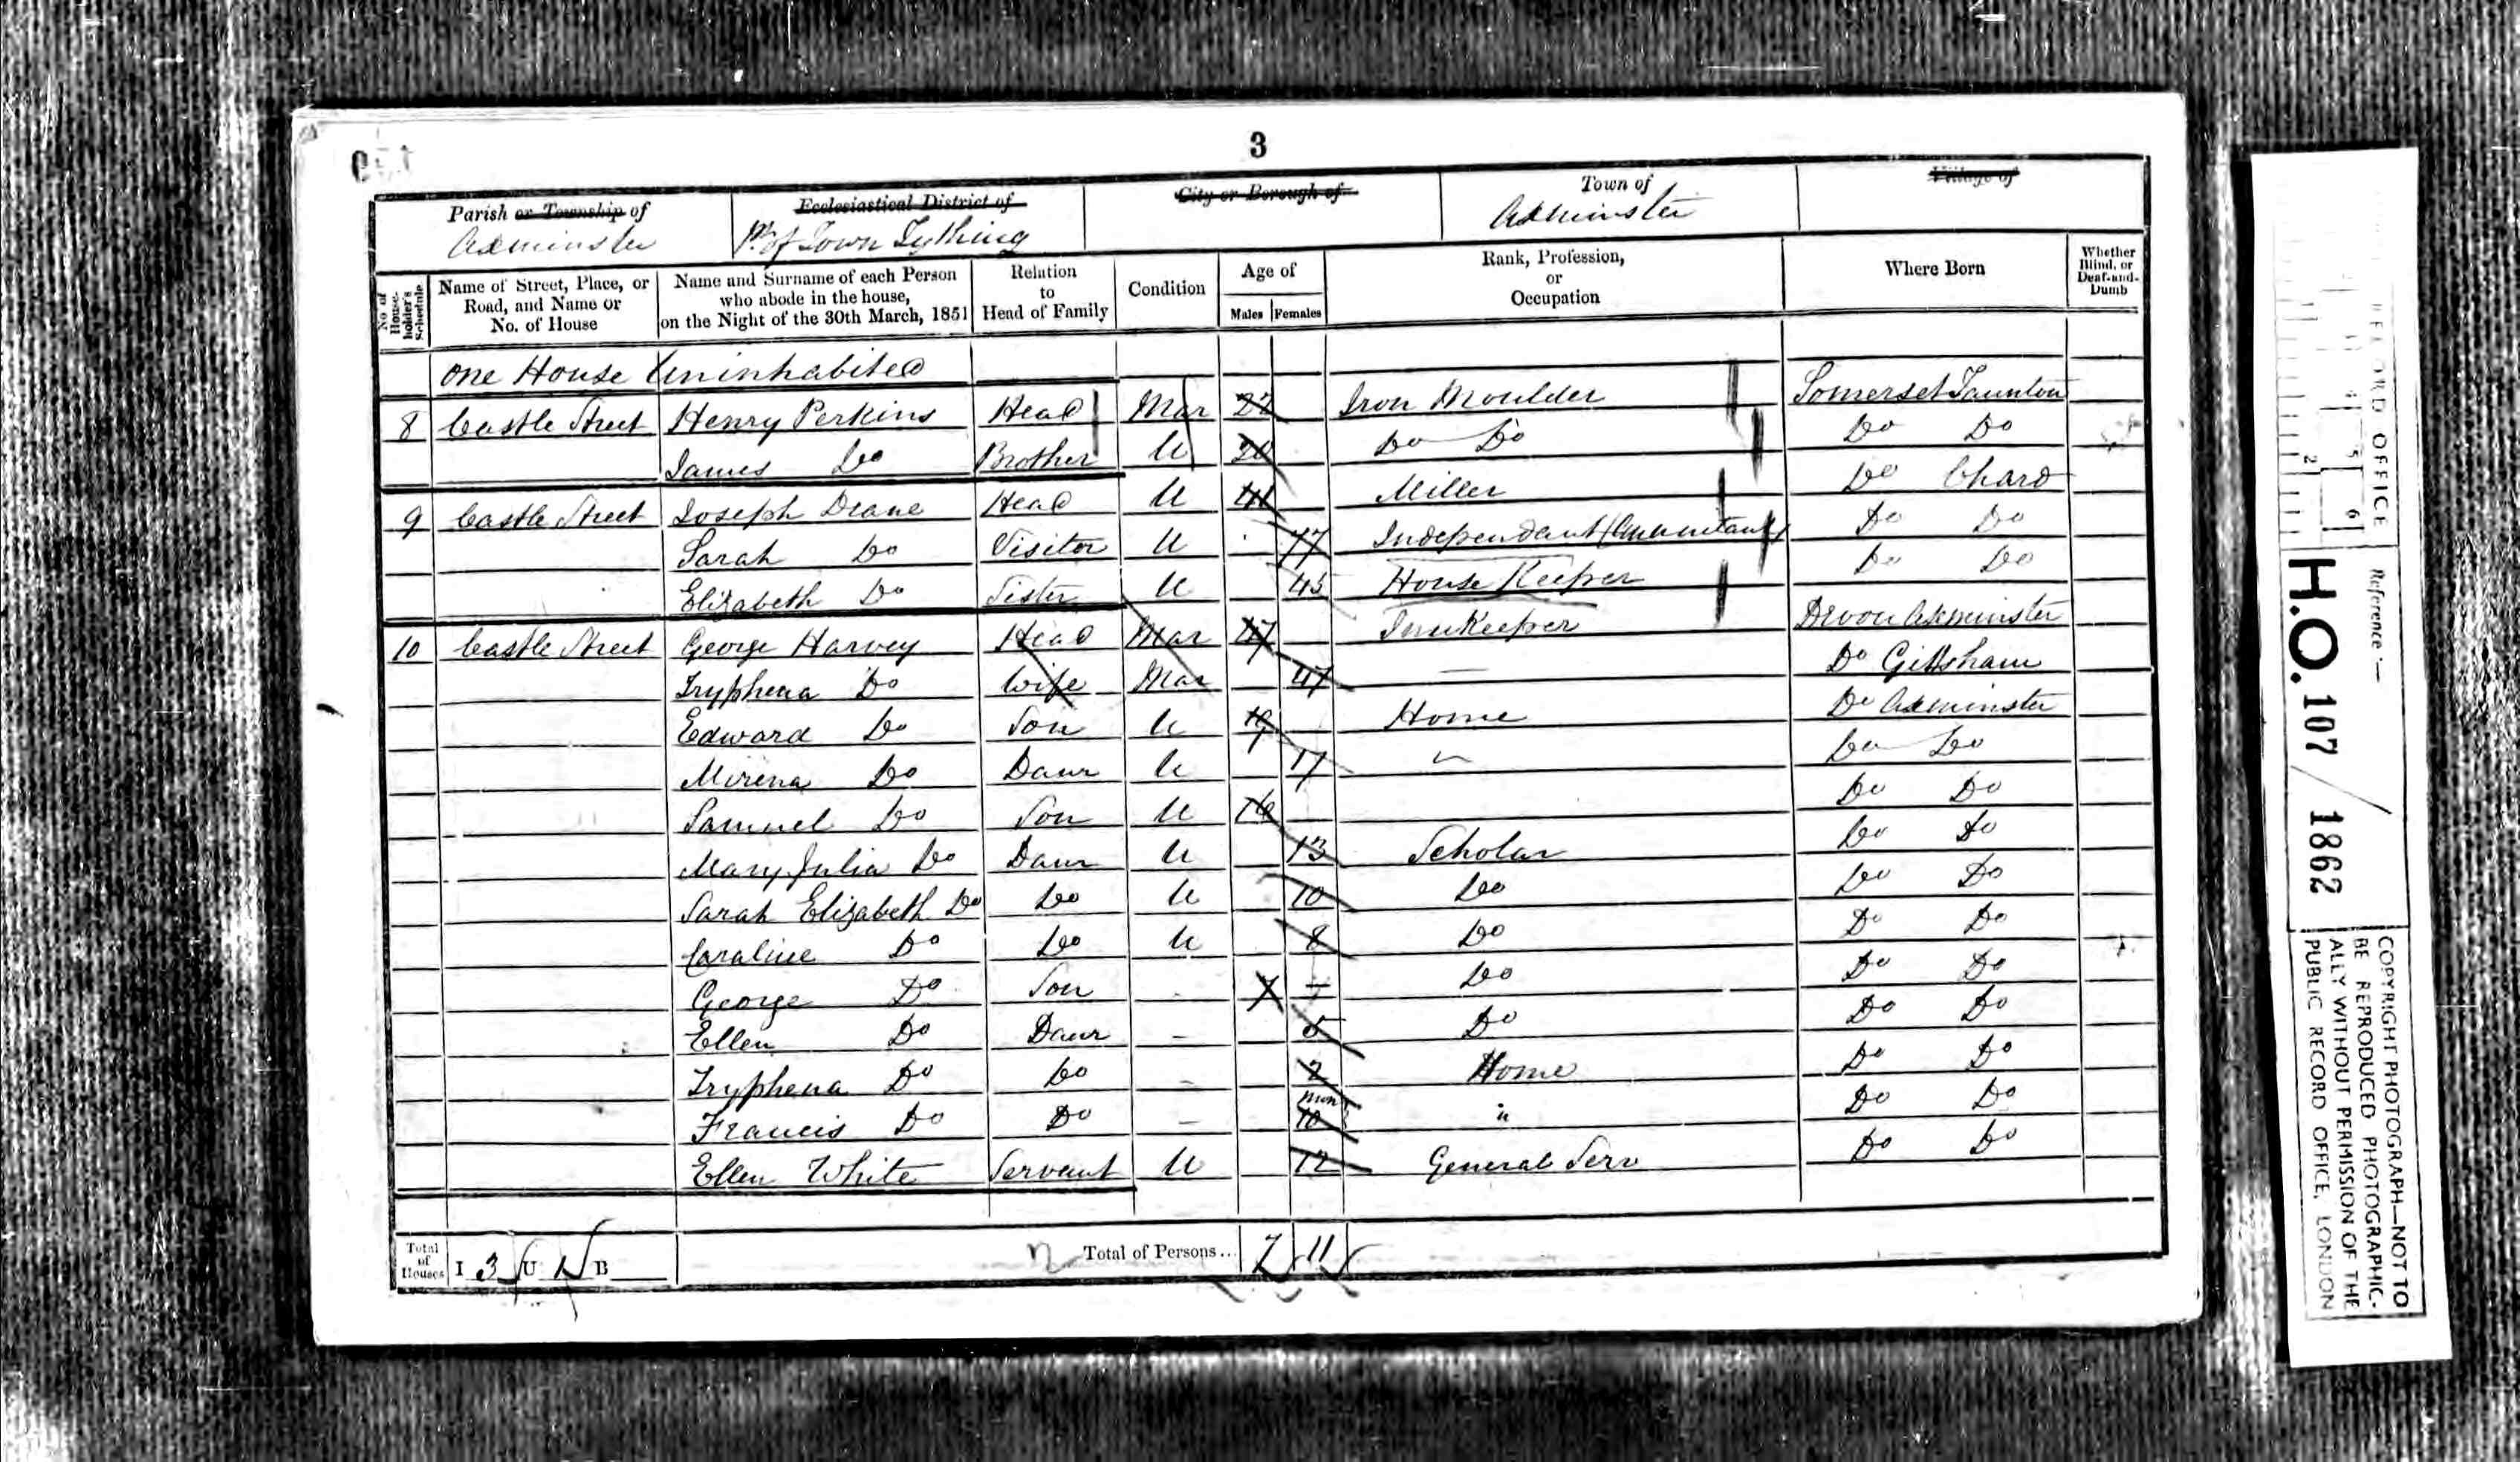 3
Parish or Township of
Axminster
Ecclesiastical District of
Pt of Town Tything
City or Borough of
Town of
Axminster
Village of
No. of House-holder's Schedule
Name of Street, Place, or Road, and Name or No. of House
Name and Surname of each Person who abode in the house, on the Night of the 30th March, 1851
Relation to Head of Family
Condition
Age of
Males Females
Rank, Profession, or Occupation
Where Born
Whether Blind, or Deaf-and-Dumb
One House Uninhabited
8 Castle Street Henry Perkins Head Mar 22 Iron Moulder Somerset Taunton
James Do Brother U 20 Do Do Do Do
9 Castle Street Joseph Deane Head U 41 Miller Do Chard
Sarah Do Visitor U 77 Independant Do Do
Elizabeth Do Sister U 45 House Keeper Do Do
10 Castle Street George Harvey Head Mar 47 Innkeeper Devon Axminster
Tryphena Do Wife Mar 47 — Do Gittsham
Edward Do Son U 19 Home Do Axminster
Mirena Do Daur U 17 Do Do
Samuel Do Son U 16 Do Do
Mary Julia Do Daur U 13 Scholar Do Do
Sarah Elizabeth Do Do U 10 Do Do Do
Caroline Do Do U 8 Do Do Do
George Do Son - 7 Do Do Do
Ellen Do Daur — 5 Do Do Do
Tryphena Do Do — 2 Home Do Do
Francis Do Do — 10 Mon " Do Do
Ellen White Servant U 12 General Serv Do Do
Total of Houses I 3 U 1 B
Total of Persons... 7 11
RECORD OFFICE
Reference :—
H.O. 107 / 1862
COPYRIGHT PHOTOGRAPH—NOT TO
BE REPRODUCED PHOTOGRAPHIC-
ALLY WITHOUT PERMISSION OF THE
PUBLIC RECORD OFFICE, LONDON